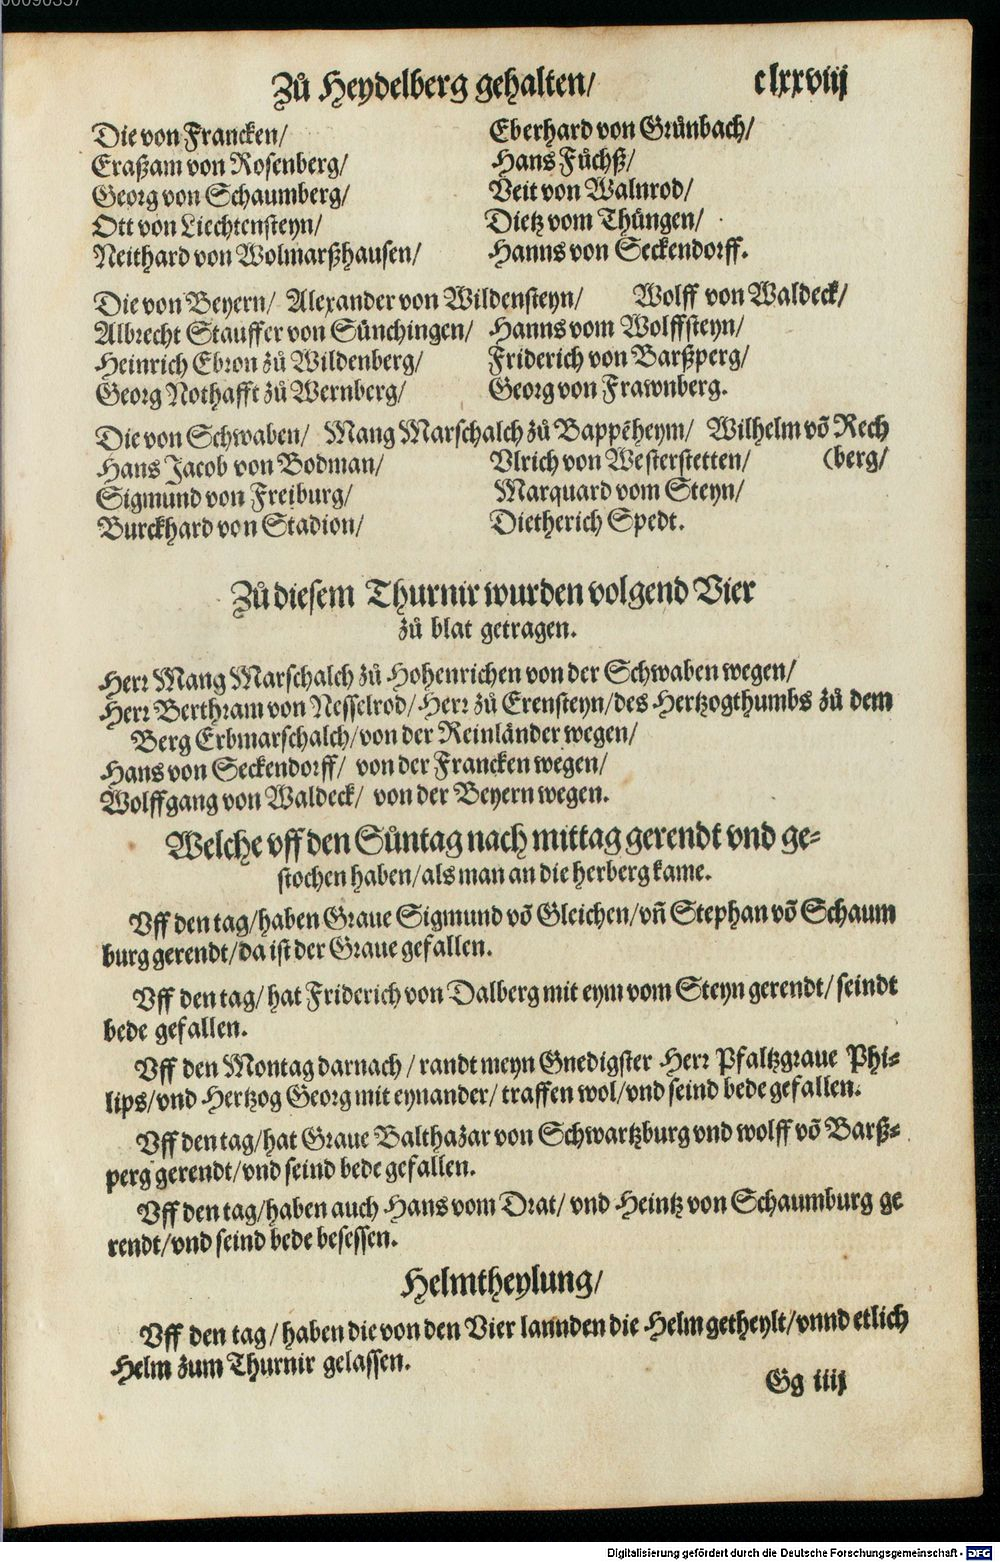 Zů Heydelberg gehalten/ clxxviij
Die von Francken/ Eberhard von Grünbach/
Eraßam von Rosenberg/ Hans Füchß/
Georg von Schaumberg/ Veit von Walnrod/
Ott von Liechtensteyn/ Dietz vom Thüngen/
Neithard von Wolmarßhausen/ Hanns von Seckendorff.
Die von Beyern/ Alexander von Wildensteyn/ Wolff von Waldeck/
Albrecht Stauffer von Sünchingen/ Hanns vom Wolffsteyn/
Heinrich Ebron zů Wildenberg/ Friderich von Barßperg/
Georg Nothafft zů Wernberg/ Georg von Frawnberg.
Die von Schwaben/ Mang Marschalch zů Bappēheym/ Wilhelm vō Rech
Hans Jacob von Bodman/ Vlrich von Westerstetten/ (berg/
Sigmund von Freiburg/ Marquard vom Steyn/
Burckhard von Stadion/ Dietherich Spedt.
Zů diesem Thurnir wurden volgend Vier
zů blat getragen.
Herr Mang Marschalch zů Hohenrichen von der Schwaben wegen/
Herr Berthram von Nesselrod/ Herr zů Erensteyn/ des Hertzogthumbs zů dem
Berg Erbmarschalch/ von der Reinländer wegen/
Hans von Seckendorff/ von der Francken wegen/
Wolffgang von Waldeck/ von der Beyern wegen.
Welche vff den Sůntag nach mittag gerendt vnd ge⸗
stochen haben/ als man an die herberg kame.
Vff den tag/ haben Graue Sigmund vō Gleichen/ vñ Stephan vō Schaum
burg gerendt/ da ist der Graue gefallen.
Vff den tag/ hat Friderich von Dalberg mit eym vom Steyn gerendt/ seindt
bede gefallen.
Vff den Montag darnach/ randt meyn Gnedigster Herr Pfaltzgraue Phi⸗
lips/ vnd Hertzog Georg mit eynander/ traffen wol/ vnd seind bede gefallen.
Vff den tag/ hat Graue Balthazar von Schwartzburg vnd wolff vō Barß⸗
perg gerendt/ vnd seind bede gefallen.
Vff den tag/ haben auch Hans vom Drat/ vnd Heintz von Schaumburg ge
rendt/ vnd seind bede besessen.
Helmtheylung/
Vff den tag/ haben die von den Vier lannden die Helm getheylt/ vnnd etlich
Helm zum Thurnir gelassen.
Gg iiij
Digitalisierung gefördert durch die Deutsche Forschungsgemeinschaft - DFG